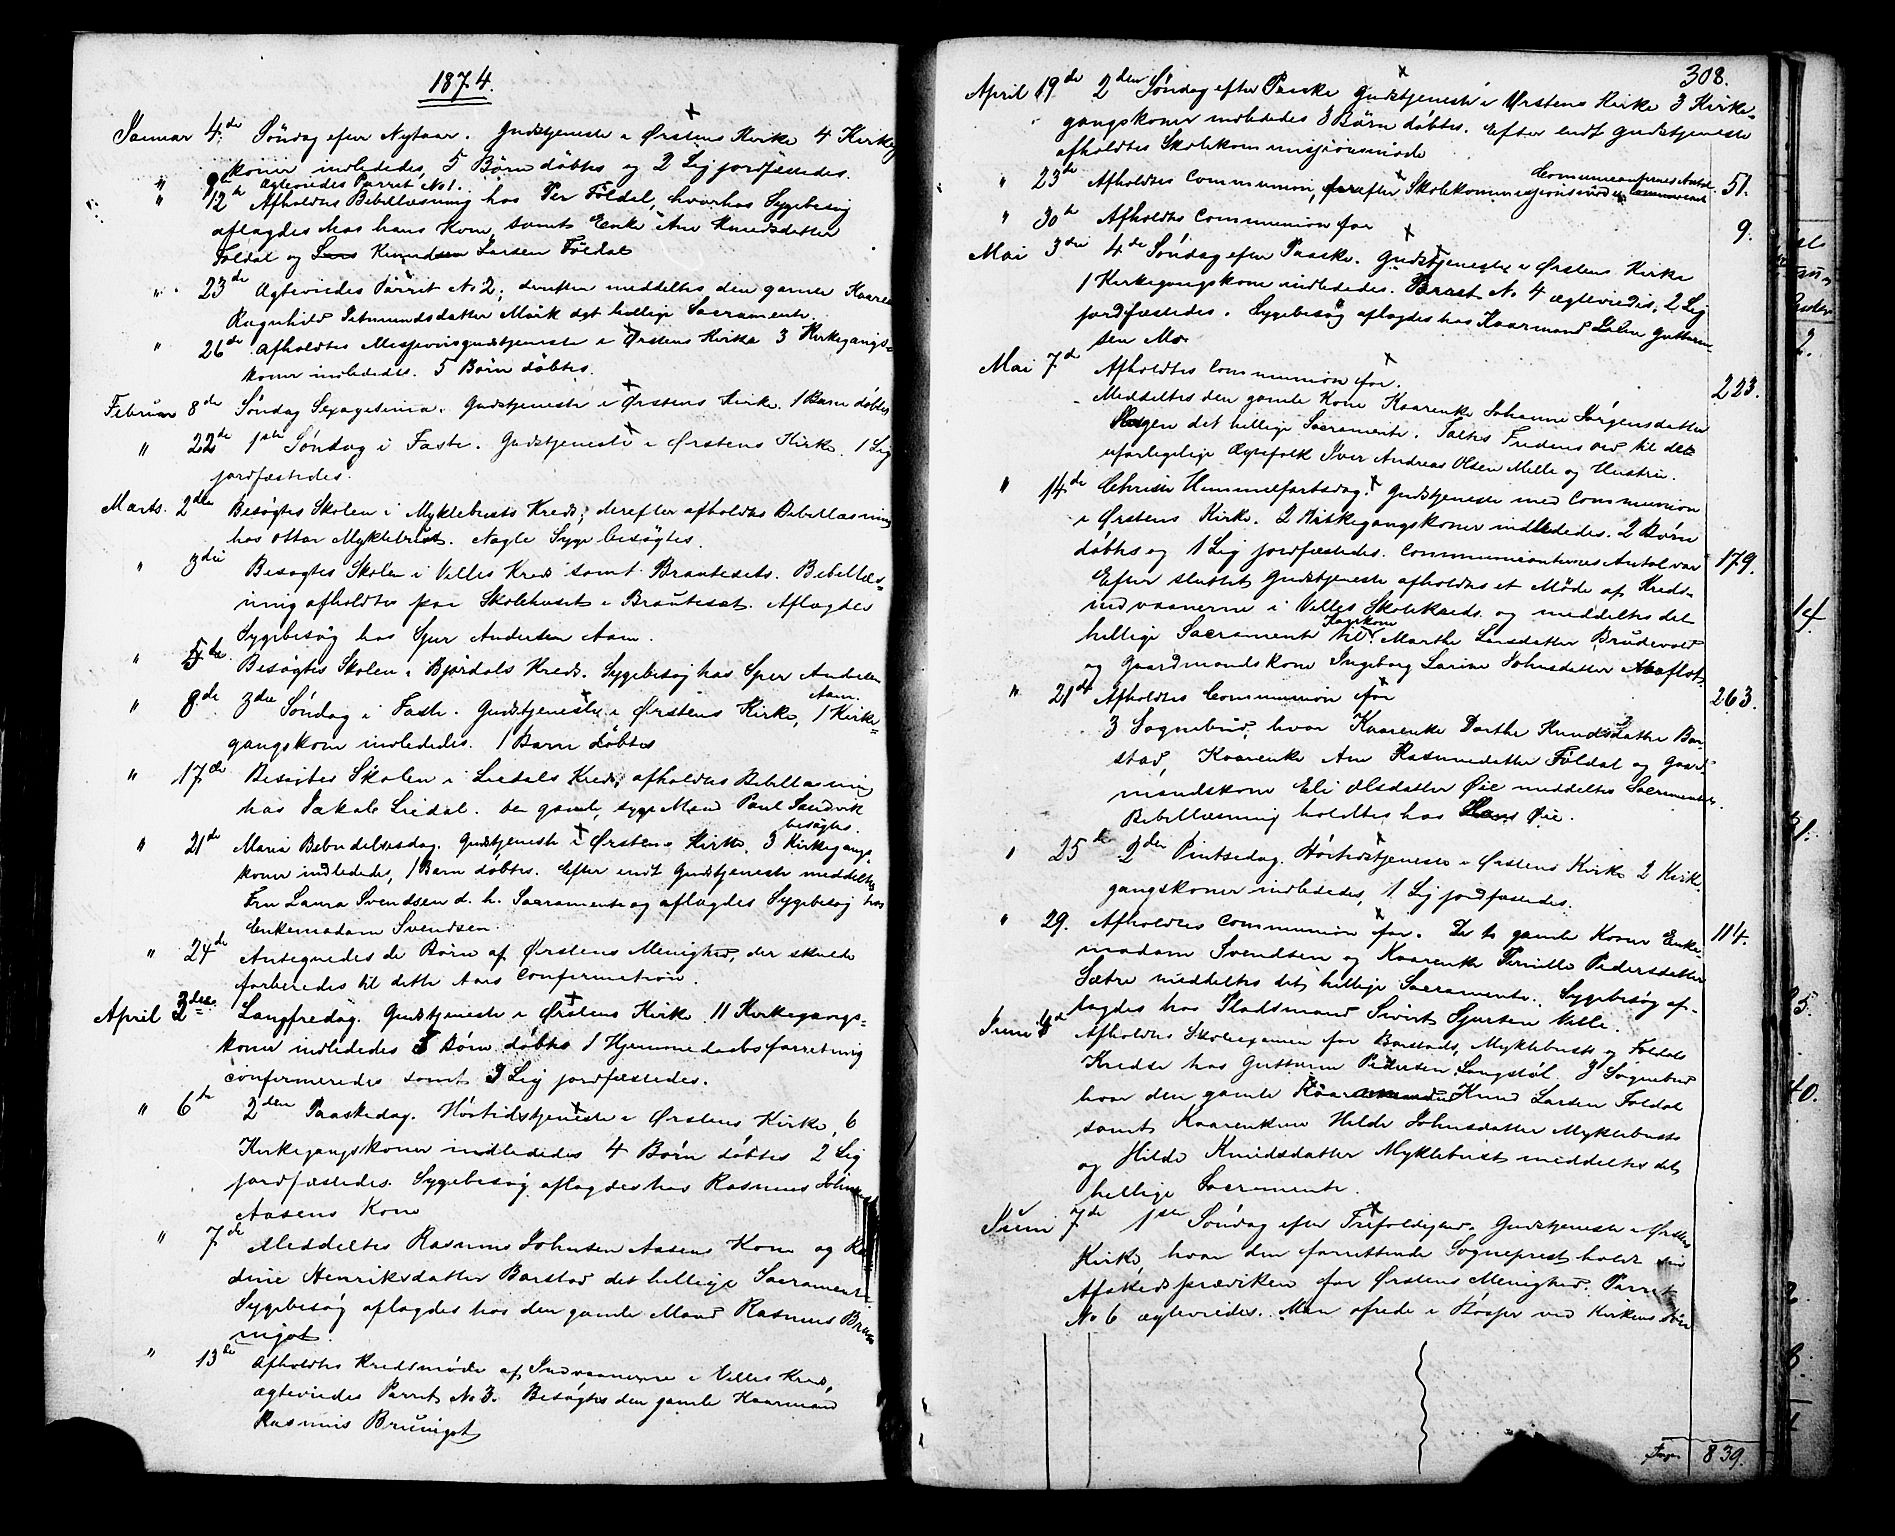 1874.
Januar 4de Søndag efter Nytaar. Gudstjeneste i Ørstens Kirke 4 Kirkeg
koner indlededes, 5 Børn døbtes og 2 Lig jordfæstedes.
" 9de Ægteviedes Parret No 1.
" 12te Afholdtes Bibellæsning hos Per Foldal, hvorhos Sygebesøg
aflagdes hos hans Kone, samt Enke Ane Knudsdatter
Foldal og Lars Knudsen Larsen Foldal
" 23de Ægteviedes Parret No 2; derefter meddeltes den gamle Kaare
Ragnhild Petmundsdatter Moik det hellige Sacramente.
" 26de Afholdtes Missionsgudstjeneste i Ørstens Kirke 3 Kirkegangs-
koner indlededes. 5 Børn døbtes.
Februar 8de Søndag Sexagesima. Gudstjeneste i Ørstens Kirke. 1 Barn døbtes
" 22de 1ste Søndag i Faste. Gudstjeneste i Ørstens Kirke. 1 Lig
jordfæstedes.
Marts. 2den Besøgtes Skolen i Myklebusts Kreds; derefter afholdtes Bibellæsning
hos Ottar Myklebust. Nogle Syge besøgtes.
" 3die Besøgtes Skolen i Velles Kreds samt Brautesets. Bibellæs-
ning afholdtes paa Skolehuset i Brauteset. Aflagdes
Sygebesøg hos Sjur Andersen Aam.
" 5te Besøgtes Skolen i Bjørdals Kreds. Sygebesøg hos Sper Andersen
Aam.
" 8de 3die Søndag i Faste. Gudstjeneste i Ørstens Kirke, 1 Kirke-
gangskone indlededes. 1 Barn døbtes
" 17de Besøgtes Skolen i Liedals Kreds, afholdtes Bibellæsning
hos Jakob Liedal. Den gamle, syge Mand Paul Sandvik
besøgtes.
" 21de Mariæ Bebudelsesdag. Gudstjeneste i Ørstens Kirke. 3 Kirkegangs-
koner indlededes, 1 Barn døbtes. Efter endt Gudstjeneste meddeltes
Fru Laura Svendsen d. h. Sacramente og aflagdes Sygebesøg hos
Enkemadam Svendsen.
" 24de Antegnedes de Børn af Ørstens Menighed, der skulde
forberedes til dette Aars Confirmation.
April 3die Langfredag. Gudstjeneste i Ørstens Kirke 11 Kirkegangs-
koner indlededes 8 Børn døbtes 1 Hjemmedaabsforretning
confirmeredes samt 3 Lig jordfæstedes.
" 6te 2den Paaskedag. Høitidstjeneste i Ørstens Kirke, 6
Kirkegangskoner indlededes 4 Børn døbtes 2 Lig
jordfæstedes. Sygebesøg aflagdes hos Rasmus Johnsen
Aasens Kone
" 7de Meddeltes Rasmus Johnsen Aasens Kone og
dine Henriksdatter Barstad det hellige Sacramente.
Sygebesøg aflagdes hos den gamle Mand Rasmus Bru
nigot.
" 13de Afholdtes Kredsmøde af Indvaanerne i Velles Kreds,
ægteviedes Parret No 3. Besøgtes den gamle Kaarmand
Rasmus Brunigot
308.
April 19de 2den Søndag efter Paaske Gudstjeneste i Ørstens Kirke 3 Kirke-
gangskoner indlededes 3 Børn døbtes. Efter endt Gudstjeneste
afholdtes Skolekommissionsmøde
Communicanternes Antal
" 23de Afholdtes Communion, derefter Skolekommissionsmøde 51.
" 30te Afholdtes Communion for 9.
Mai 3die 4de Søndag efter Paaske. Gudstjeneste i Ørstens Kirke
1 Kirkegangskone indlededes. Parret No 4 ægteviedes, 2 Lig
jordfæstedes. Sygebesøg aflagdes hos Kaarmand Guttorm
sen Mo.
Mai 7de Afholdtes Communion for. 223.
Meddeltes den gamle Kone Kaarenke Johanne Jørgensdatter
Skogen det hellige Sacramente. Taltes Fredens ord til det
uforligelige Ægtefolk Iver Andreas Olsen Melle og Hustru.
" 14de Christi Himmelfartsdag. Gudstjeneste med Communion
i Ørstens Kirke. 2 Kirkegangskoner indlededes. 2 Børn
døbtes og 1 Lig jordfæstedes. Communicanternes Antal var 179.
Efter sluttet Gudstjeneste afholdtes et Møde af Kreds-
indvaanerne i Velles Skolekreds og meddeltes det
hellige Sacramente til Marthe Larsdatter Brudevold
og Gaardmandskone Ingeborg Larine Johnsdatter Aaflot.
" 21de Afholdtes Communion for 263.
3 Sognebud, hvor Kaarenke Dorthe Knudsdatter Bar-
stad, Kaarenke Ane Rasmusdatter Foldal og Gaard-
mandskone Eli Olsdatter Øie meddeltes Sacramentet.
Bibellæsning holdtes hos Hans Øie.
" 25de 2den Pintsedag. Høitidstjeneste i Ørstens Kirke 2 Kirke
gangskoner indlededes, 1 Lig jordfæstedes.
" 29. Afholdtes Communion for. De to gamle Koner Enke- 114.
madam Svendsen og Kaarenke Pernille Pedersdatter
Sætre meddeltes det hellige Sacramente. Sygebesøg af-
lagdes hos Pladsmand Sivert Sjursen Velle.
Juni Afholdtes Skolexamen for Barstads, Myklebusts og Foldals
Kredse hos Guttorm Pedersen Langstøl. 3 Sognebud
hvor den gamle Kaarmand Knud Larsen Foldal
samt Kaarenkene Hilde Johnsdatter Myklebust
og Hilde Knudsdatter Myklebust meddeltes det
hellige Sacramente.
Juni 7de 1ste Søndag efter Trefoldighed. Gudstjeneste i Ørstens
Kirke, hvor den forrettende Sogneprest holdt sin
Afskedsprædiken for Ørstens Menighed. Parret
No 6 ægteviedes. Man ofrede i Bøsser ved Kirkens Dør
839.